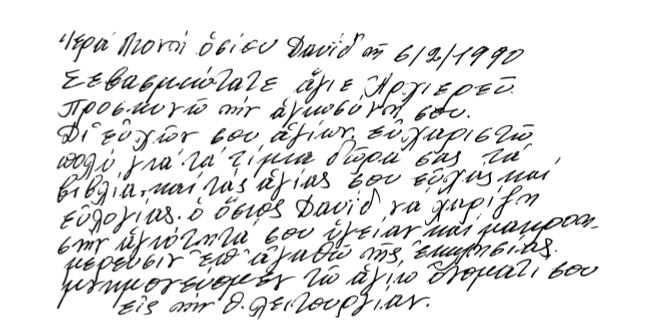 Ἱερά Μονή ὁσίου Δαυΐδ τῇ 6/2/1990
Σεβασμιώτατε ἅγιε Ἀρχιερεῦ.
Προσκυνῶ τήν ἁγιωσύνη σου.
Δι' εὐχῶν σου ἁγίων. εὐχαριστῶ
πολύ γιά τά τίμια δῶρα σας τά
βιβλία, καί τάς ἁγίας σου εὐχάς καί
εὐλογίας. ὁ ὅσιος Δαυΐδ νά χαρίζη
στην ἁγιότητά σου ὑγείαν καί μακροη-
μέρευσιν ἐπ' ἀγαθῷ τῆς ἐκκλησίας.
μνημονεύομεν τῷ ἁγίῳ ὀνόματί σου
εἰς τήν θ. λειτουργίαν.